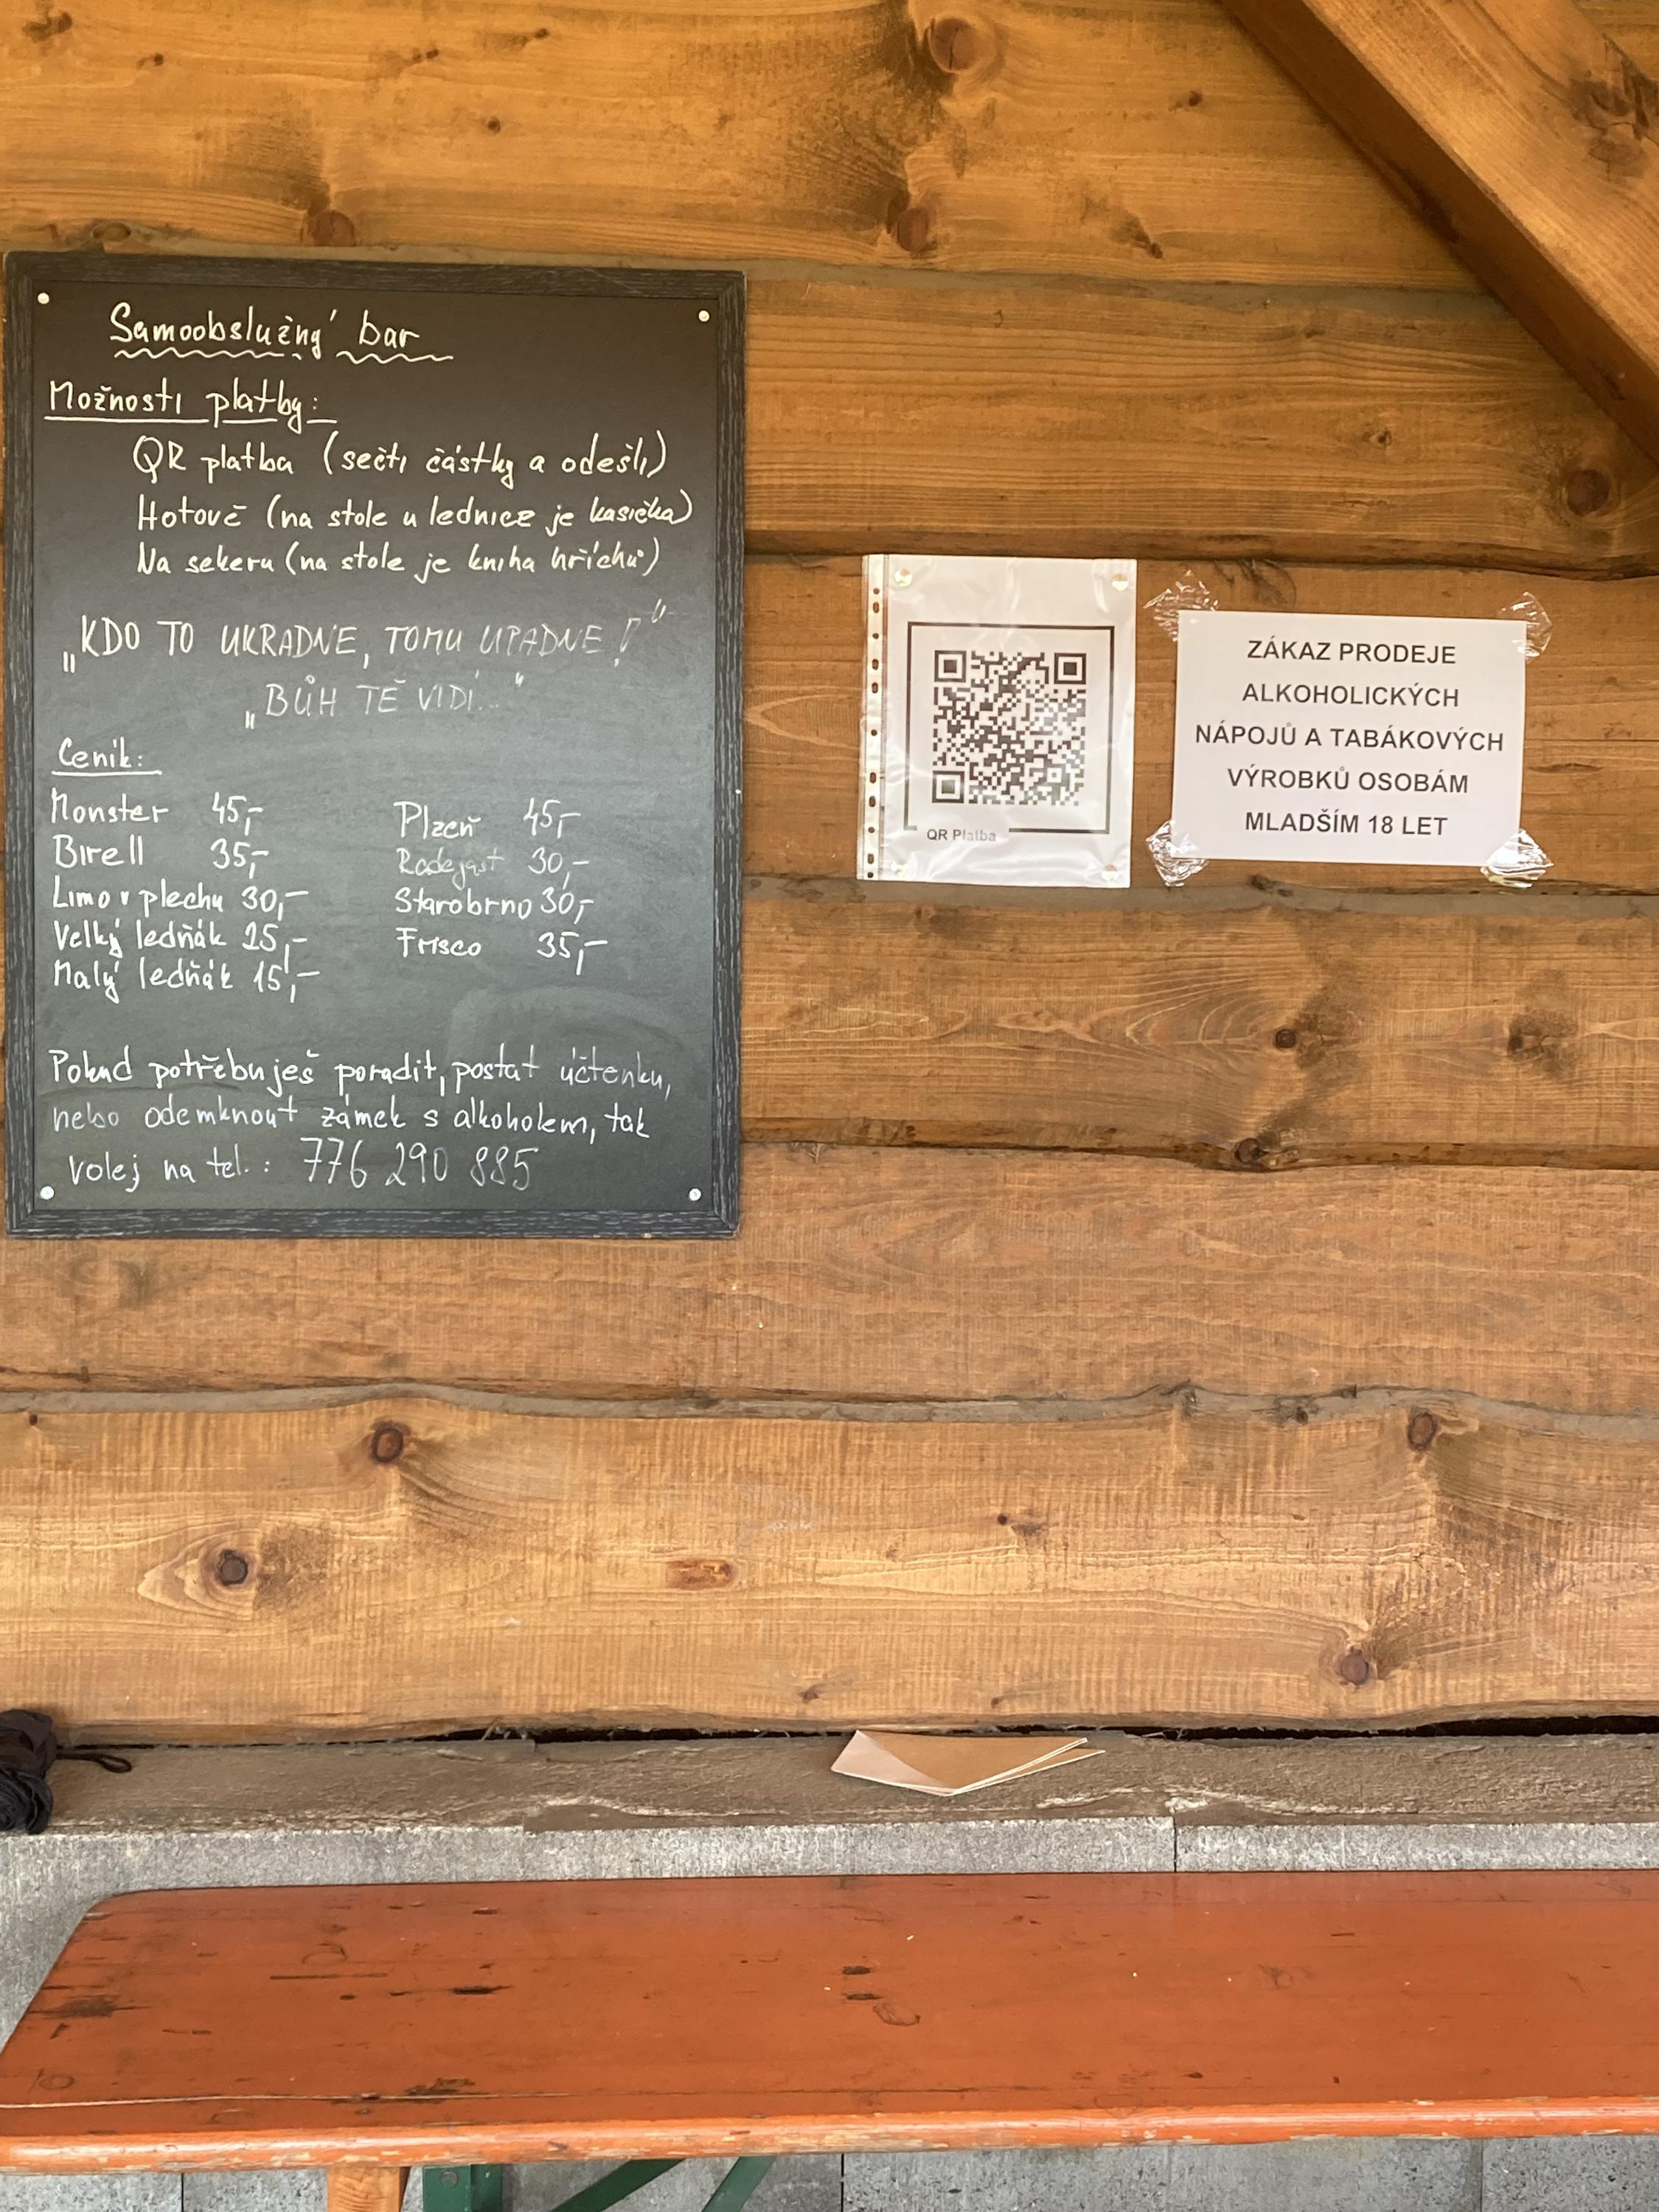 Samoobslužný bar
Možnosti platby:
QR platba (sečti částky a odešli)
Hotově (na stole u lednice je kasička)
Na sekeru (na stole je kniha hříchů)
„KDO TO UKRADNE, TOMU UPADNE!"
„BŮH TĚ VIDÍ..."
Ceník:
Monster 45,-
Birell 35,-
Limo v plechu 30,-
Velký ledňák 25,-
Malý ledňák 15,-
Plzeň 45,-
Radegast 30,-
Starobrno 30,-
Frisco 35,-
Pokud potřebuješ poradit, postat účtenku,
nebo odemknout zámek s alkoholem, tak
volej na tel.: 776 290 885
QR Platba
ZÁKAZ PRODEJE
ALKOHOLICKÝCH
NÁPOJŮ A TABÁKOVÝCH
VÝROBKŮ OSOBÁM
MLADŠÍM 18 LET